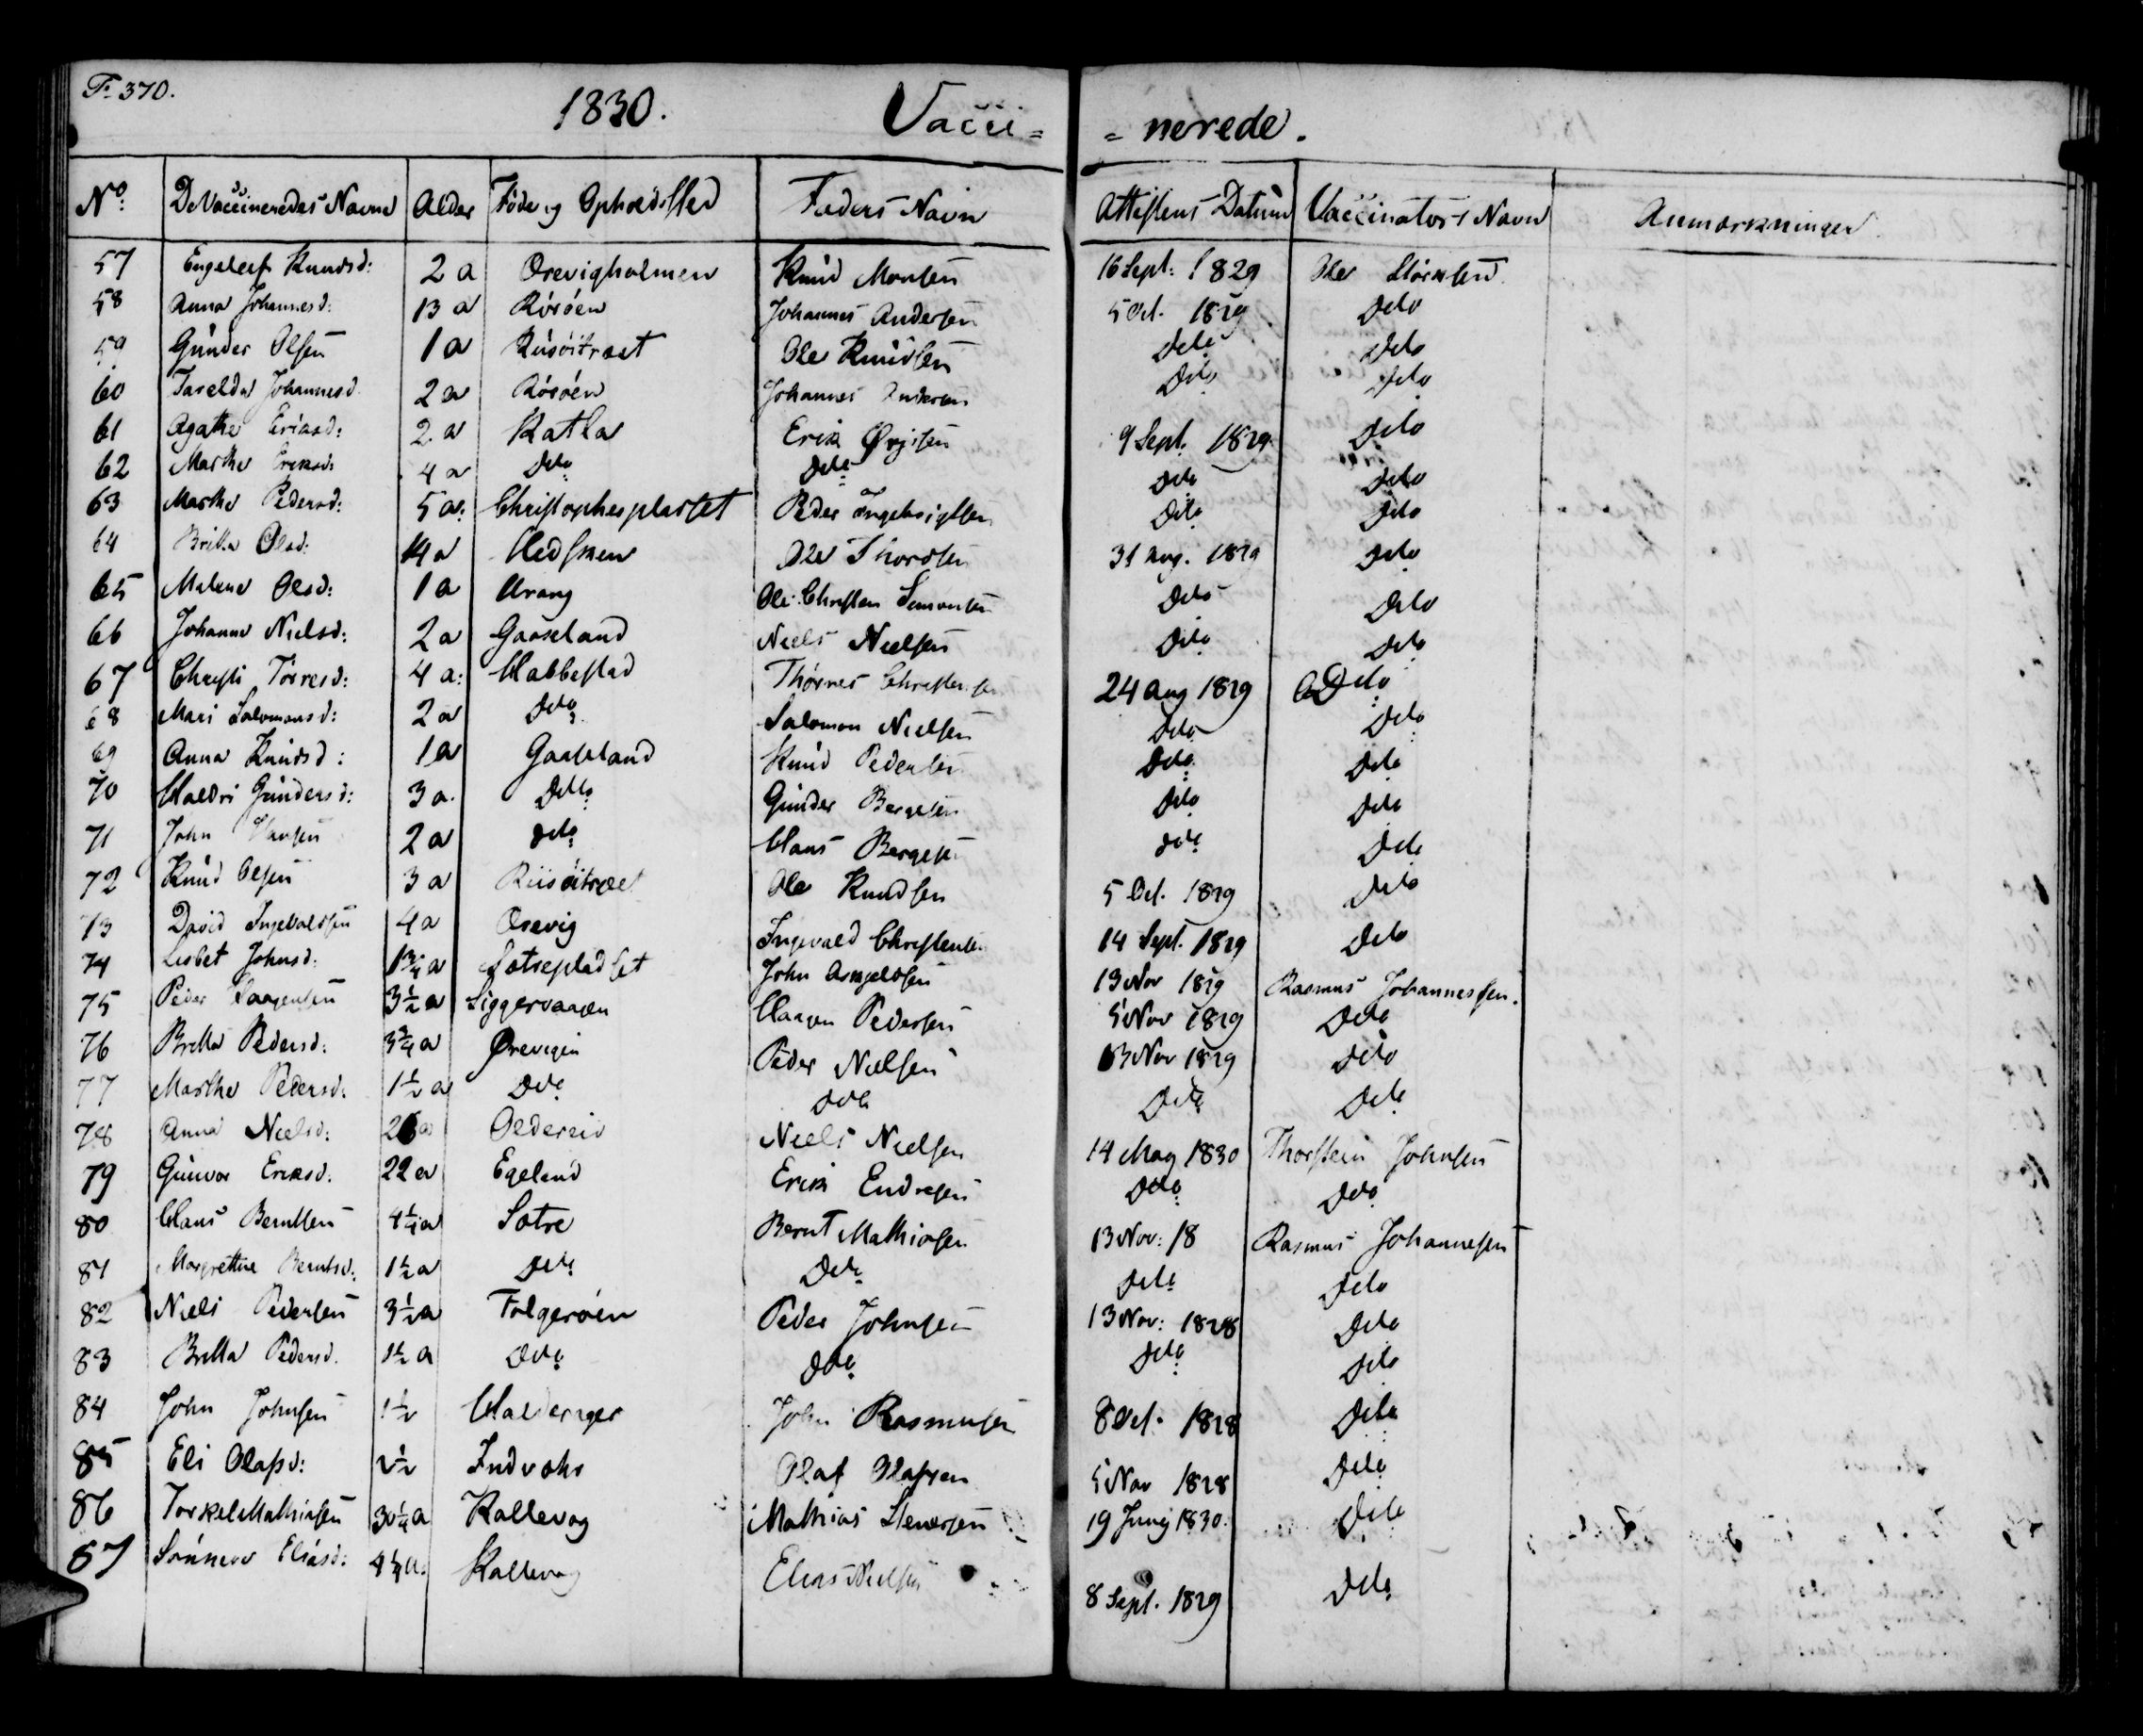 F. 370.
1830. Vacci= =nerede.
No: De Vaccineredes Navne Alder Føde og Opholdssted Faders Navn Attestens Datum Vaccinators Navn Anmærkninger.
57 Knudsd: 2 a Ørevigholmen Knud Monsen 16 Sept: 1829 Ole
58 Anna Johannesd: 13 a Röröen Johannes Andersen 5 Oct. 1829 Dito
59 Gunder Olsen 1 a Ole Knudsen Dito Dito
60 Johannesd. 2 a Röröen Johannes Andersen Dito Dito
61 Agathe Eriksd: 2 a Katla Erik 9 Sept. 1829 Dito
62 Marthe Eriksd: 4 a Dito Dito Dito Dito
63 Marthe Pedersd: 5 a: Christopherpladset Peder Ingebrigtsen Dito Dito
64 Britta Olsd: 14 a Ole Thordsen 31 Aug. 1829 Dito
65 Malene Olsd: 1 a Urang Ole Christen Simonsen Dito Dito
66 Johanne Nielsd: 2 a Gaaseland Niels Nielsen Dito Dito
67 Christi Törresd: 4 a: Habbestad Thörres Christensen 24 Aug 1829 Dito
68 Mari Salomonsd: 2 a Dito Salomon Nielsen Dito Dito
69 Anna Knudsd: 1 a Gaaseland Knud Pedersen Dito Dito
70 Haldri Gundersd: 3 a. Ditto Gunder Bergesen Dito Dito
71 John Hansen 2 a Dito Hans Bergesen Dito Dito
72 Knud Olsen 3 a Ole Knudsen 5 Oct. 1829 Dito
73 David Ingebaldsen 4 a Ørevig Ingevald Christensen 14 Sept. 1829 Dito
74 Lisbet Johnsd: 1 3/4 a Sotrepladset John 13 Nov 1829 Rasmus Johannessen.
75 Peder Haagensen 3 1/2 a Siggervaagen Haagen Pedersen 5 Nov 1829 Dito
76 Britta Pedersd: 3 3/4 a Ørevigen Peder Nielsen 13 Nov 1829 Dito
77 Marthe Pedersd: 1 1/2 a Dito Dito Dito Dito
78 Anna Nielsd: a Oedereid Niels Nielsen 14 May 1830 Thorstein Johnsen
79 Gunvor Eriksd: 22 a Egeland Erik Endresen Dito Dito
80 Hans Berntsen 4 1/4 a Sotre Bernt Mathiasen 13 Nov: 18 Rasmus Johannesen
81 Margrethe Berntsd: 1 1/2 a Dito Dito Dito Dito
82 Niels Pedersen 3 1/2 a Folgeröen Peder Johnsen 13 Nov: 1828 Dito
83 Britta Pedersd. 1 1/2 a Dito Dito Dito Dito
84 John Johnsen 1 1/2 John Rasmusen 8 Oct. 1828 Dito
85 Eli Olafsd: 2 1/2 Olaf Olafsen 5 Nov 1828 Dito
86 Torkel Mathiasen 30 1/4 a Kallevag Mathias Stenersen 19 Juny 1830. Dito
87 Eliasd: 4 1/4 a. Kallevag Elias Nielsen 8 Sept. 1829 Dito